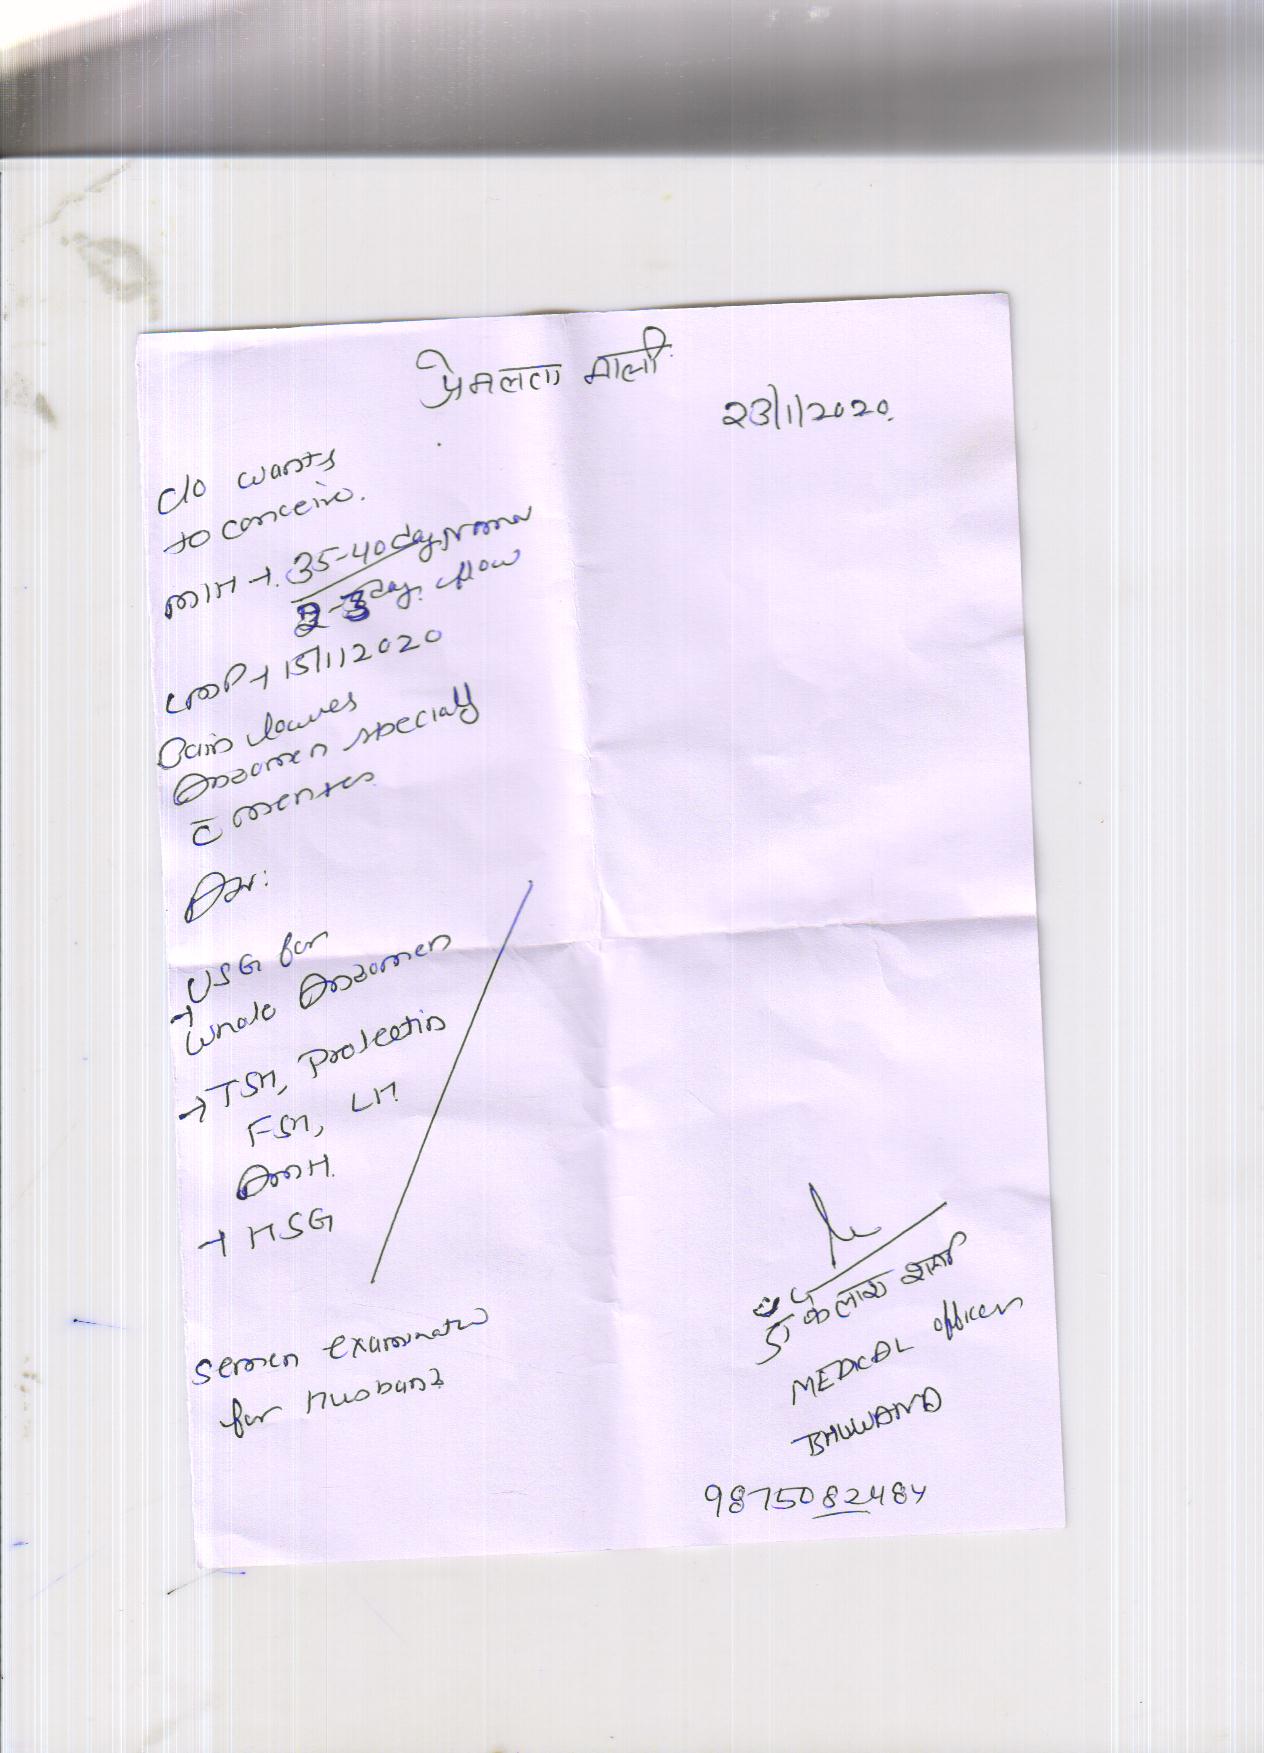 प्रेमलता माली
23/1/2020.
c/o wants
to conceive.
M/H → 35-40 days normal
2-3 day flow
LMP → 15/1/2020
Pain lower
Abdomen specially
c̄ menses
Adv:
USG for
→ whole Abdomen
→ TSH, Prolactin
FSH, LH
AMH.
→ HSG
Semen examination
for Husband
डॉ कैलाश शर्मा
MEDICAL officer
BHUWANA
9875082484